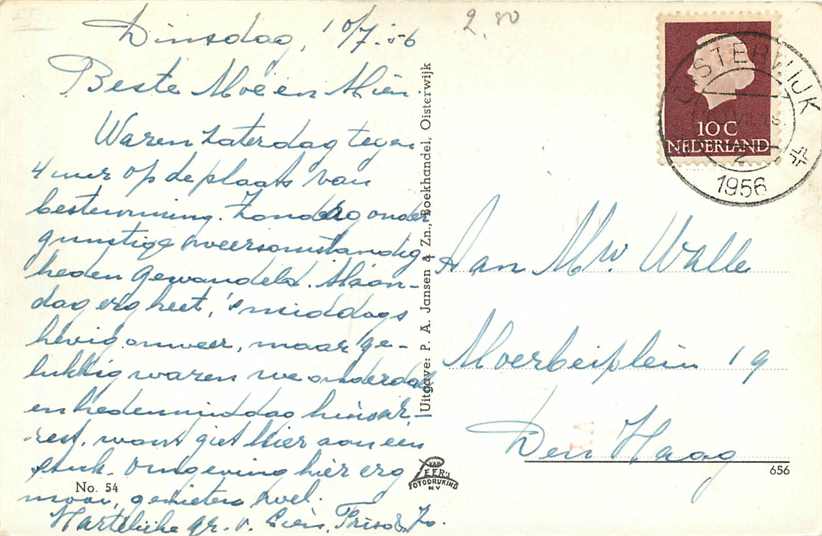 Dinsdag, 10/7.-56
2.80
Beste Moe en Mien.
Waren Zaterdag tegen
4 uur op de plaats van
bestemming. Zondag onder
gunstige weersomstandig-
heden gewandeld. Maan-
dag erg heet, 's middags
hevig onweer, maar ge-
lukkig waren we onderdak
en hedenmiddag huisar-
rest, want giet hier aan een
stuk. Omgeving hier erg
mooi, genieten wel.
Hartelijke gr. v.
No. 54
Uitgave: P. A. Jansen & Zn., Boekhandel, Oisterwijk
VAN LEER'S
FOTODRUKIND
N.V.
10 C
NEDERLAND
OISTERWIJK
2
1956
Aan Mw. Walle
Moerbeiplein 19
Den Haag
656